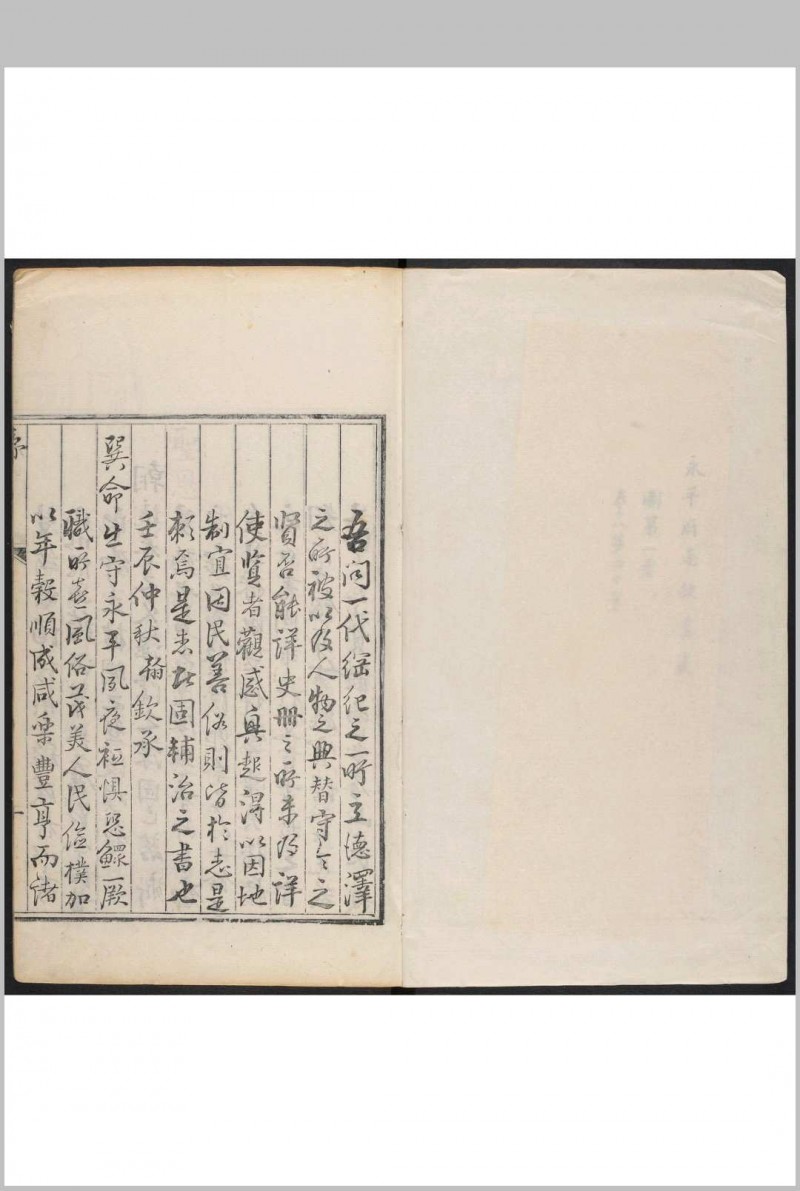 吾问一代綱紀之所立德澤
之所被以及人物之興替守令之
賢否能詳史冊之所未及詳
使覽者觀感興起得以因地
制宜因民善俗則皆於志是
頼焉是志者固輔治之書也
壬辰仲秋翰欽承
巽命出守永平夙夜祗懼恐鰥厥
職所喜風俗茂美人民儉樸加
以年穀順成咸樂豐亨而諸
序
一